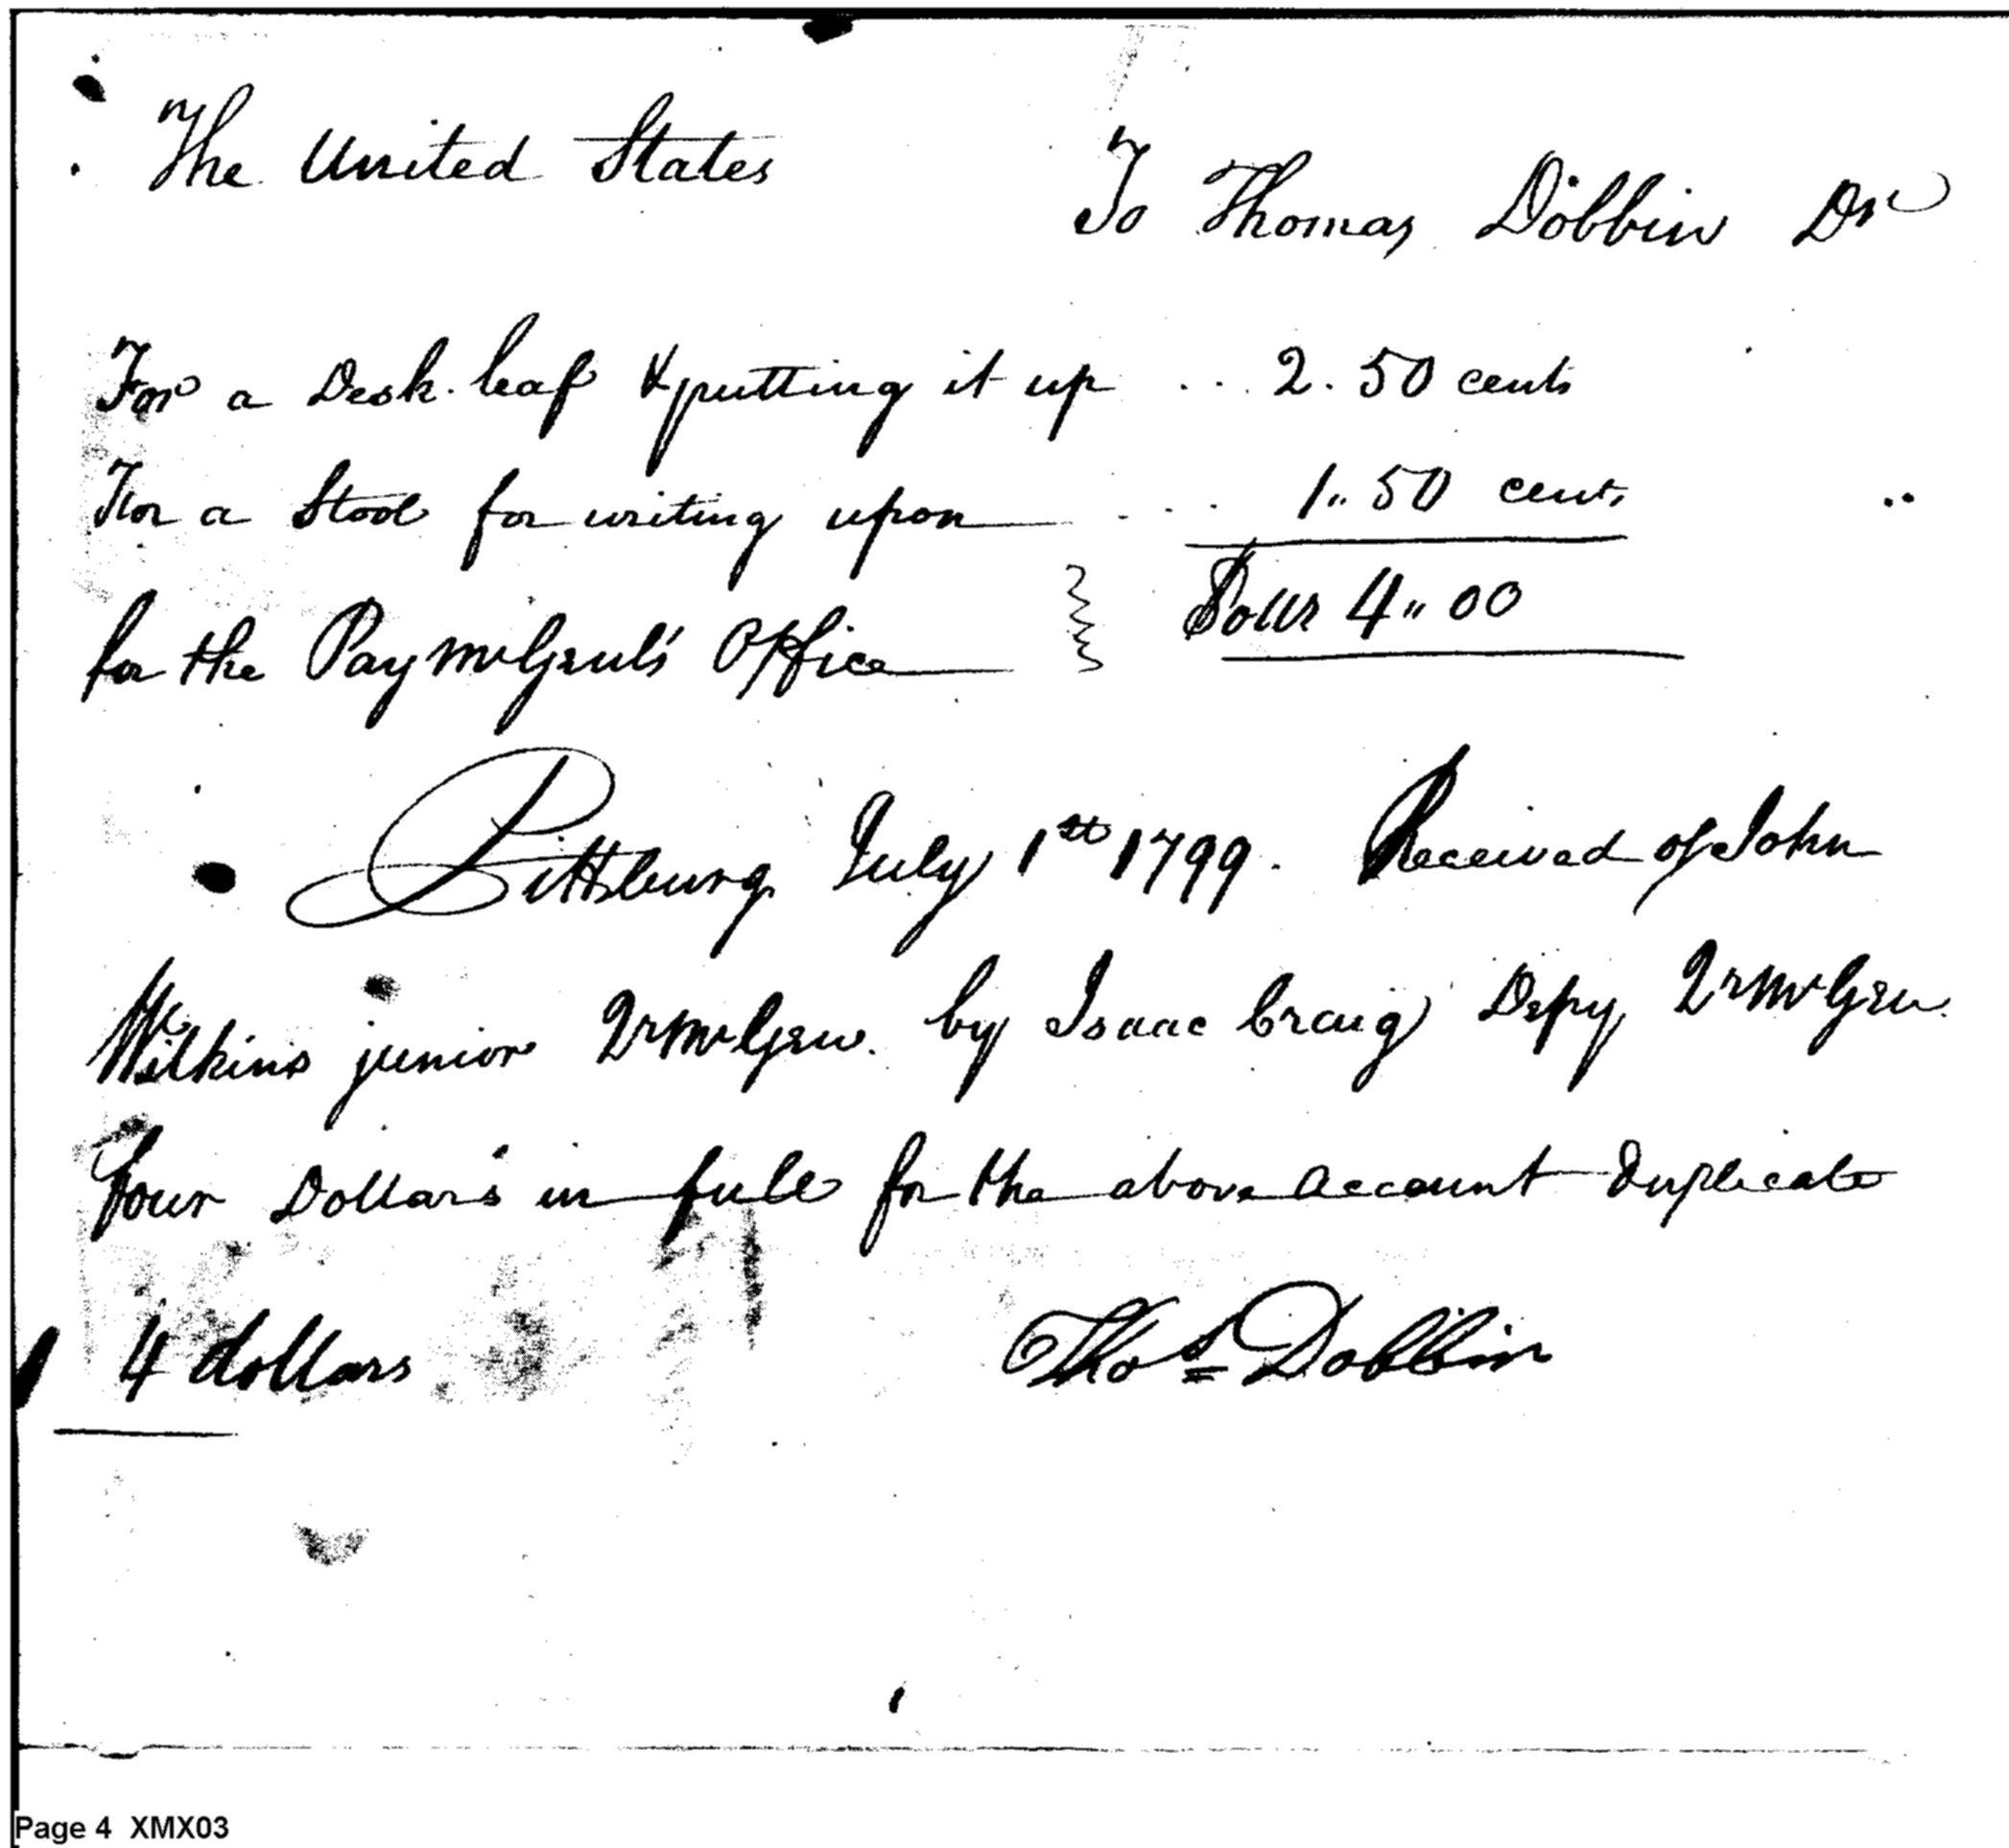 The United States
To Thomas Dobbin Dr
For a Desk leaf & putting it up ... 2. 50 cents
For a Stool for writing upon .... 1„ 50 cents
for the Pay Mr Genl's Office Dollr 4„ 00
Pittsburg July 1st 1799. Received of John
Wilkins junior Qr Mr Gen. by Isaac Craig Depy Qr Mr Gen.
four Dollars in full for the above account Duplicate
4 dollars Thos Dobbin
Page 4 XMX03